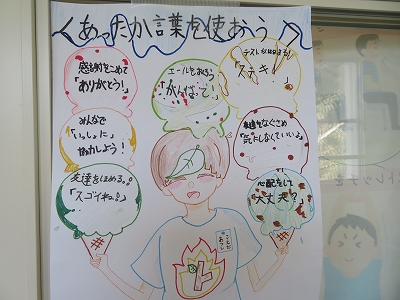 あったか言葉を使おう
感謝をこめて
「ありがとう!」
エールをおくろう
「がんばって!」
「ステキ!」
みんなで
「いっしょに」
協力しよう!
友達をなぐさめ
「気にしなくていいよ」
友達をほめる。
「スゴイネ。」
心配をして
「大丈夫?」
ストレッチを